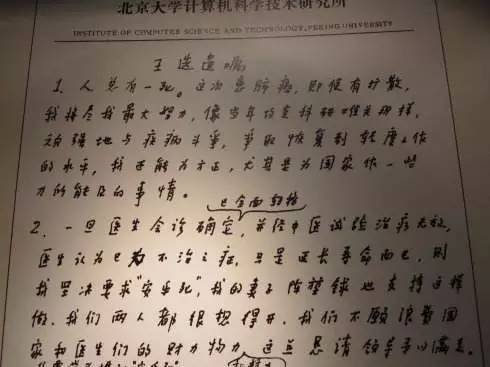 北京大学计算机科学技术研究所
INSTITUTE OF COMPUTER SCIENCE AND TECHNOLOGY, PEKING UNIVERSITY
王选遗嘱
1. 人总有一死。这次患肺癌，即使有扩散，
我将尽我最大努力，像当年攻克科研难关那样，
顽强地与疾病斗争，争取恢复到轻度工作
的水平，我还能为方正，尤其是为国家作一些
力所能及的事情。
已全面转移
2. 一旦医生会诊确定，并经中医试验治疗无效，
医生认为已为不治之症，只是延长寿命而已，则
我坚决要求“安乐死”，我的妻子陈堃銶也支持这样
做，我们两人都很想得开，我们不愿浪费国
家和医生们的财力物力，这点恳请领导予以满足。